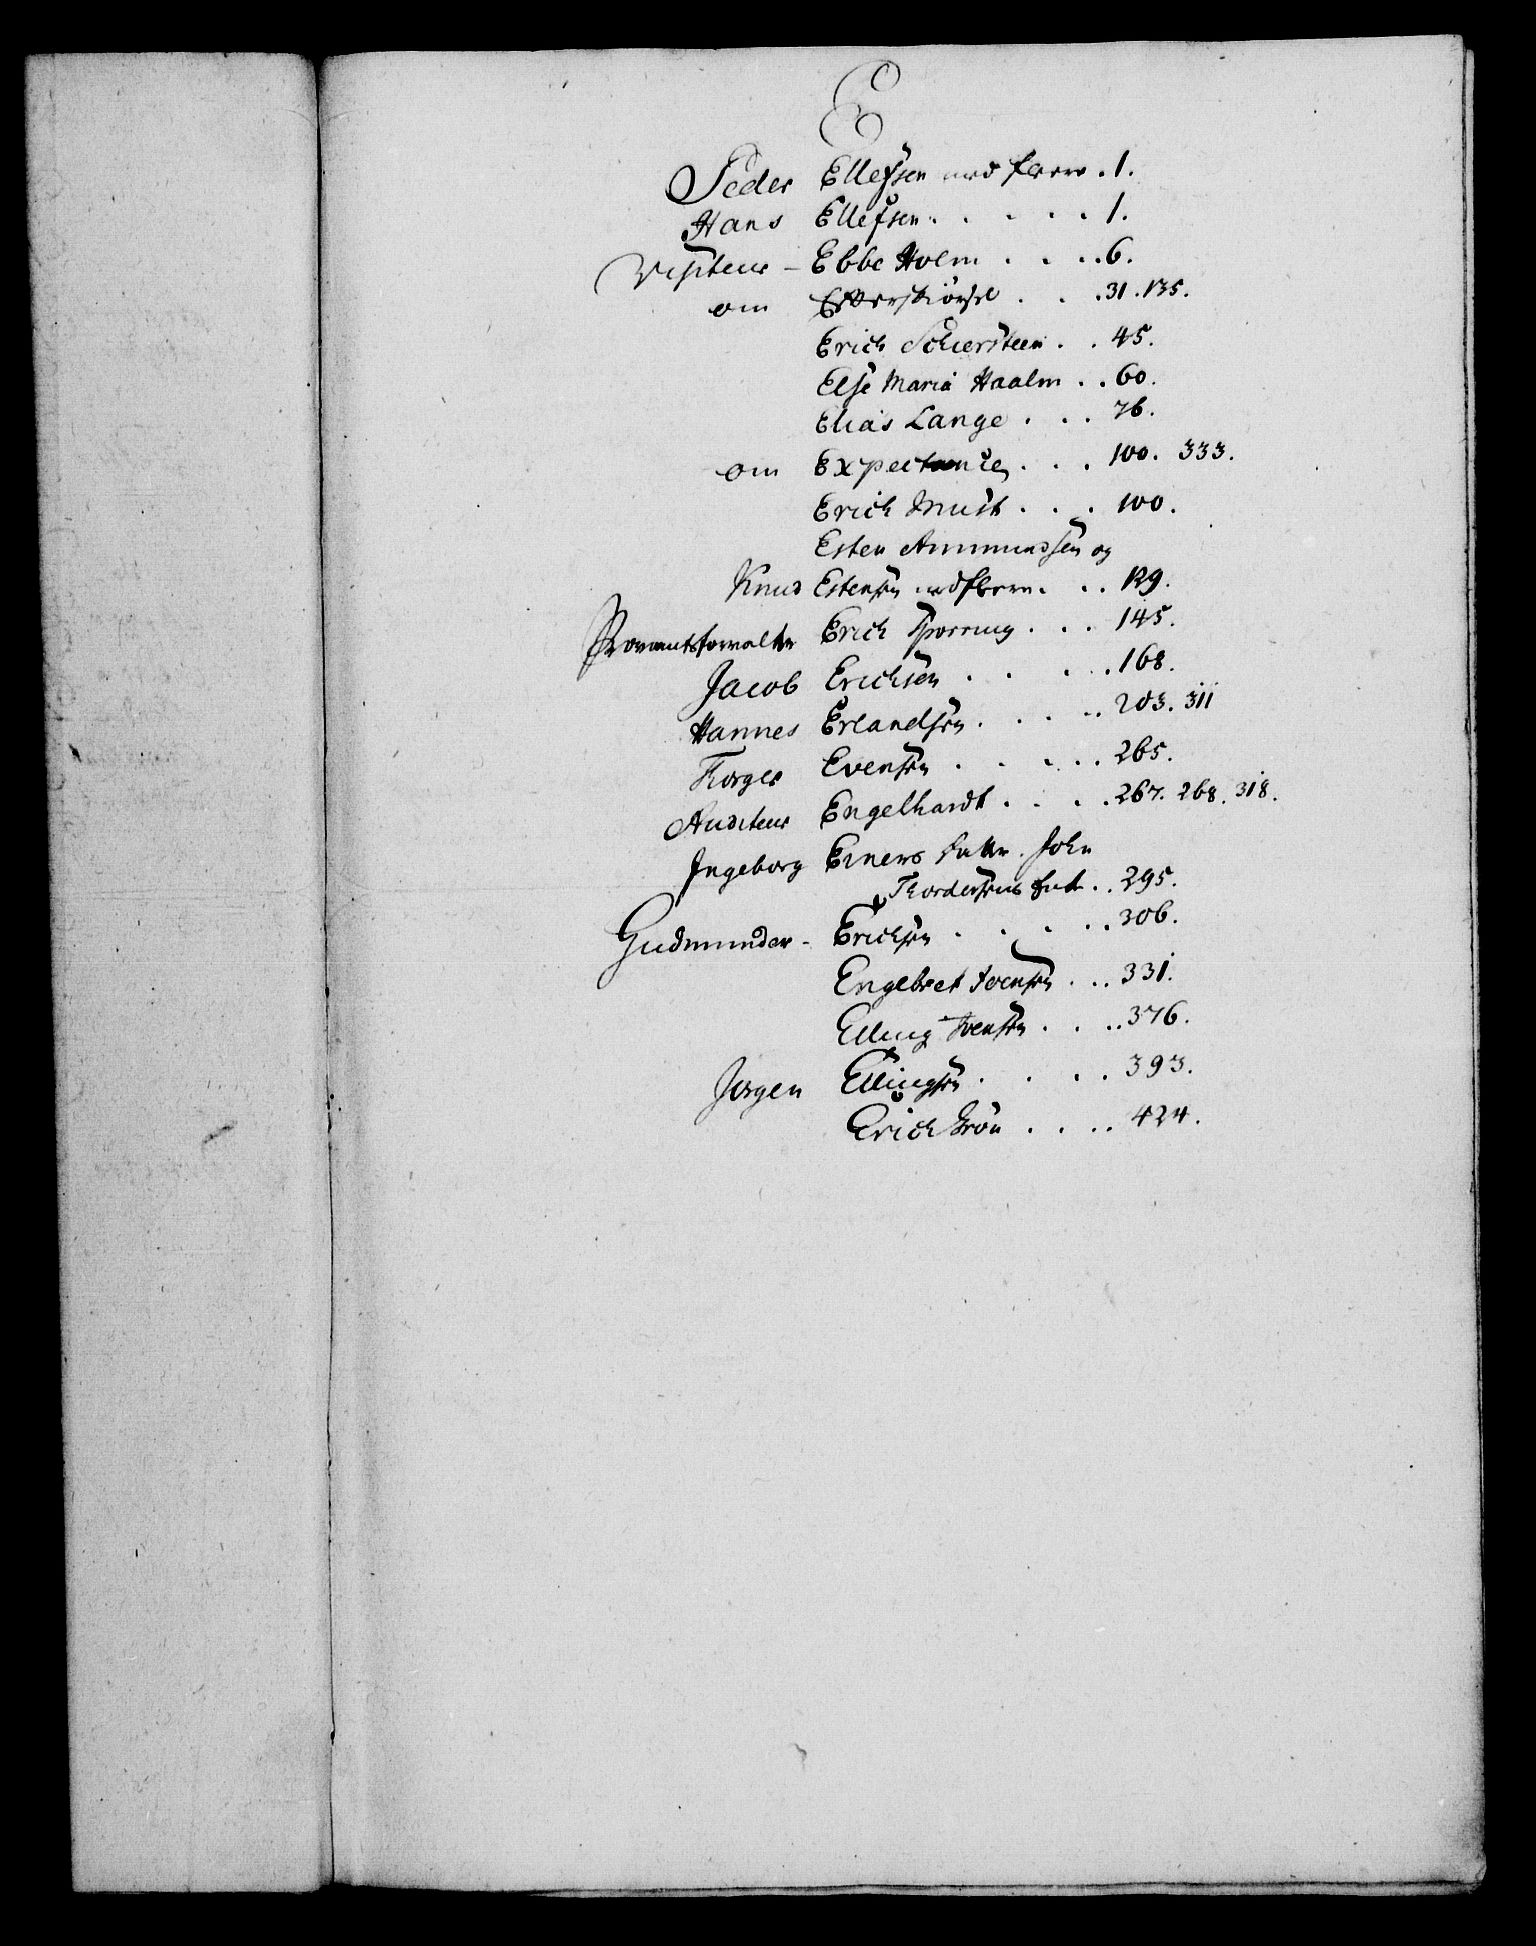 E
Peder Ellefsen med fleere . 1.
Hans Ellefsen . . . . . 1.
Visiteur - Ebbe Holm . . . . 6.
om Efterskiørsel . . . 31. 135.
Erich Schiersteen . . 45.
Else Maria Haalm . . 60.
Elias Lange . . . 76.
om Expectancer . . . 100. 333.
Erich Must . . . 100.
Esten Ammundsen og
Knud Estensen med fleere . . . 129.
Proviantsforvalter Erich Sporring . . . 145.
Jacob Erichsen . . . . 168.
Hannes Erlandsen . . . . . 203. 311
Torger Evensen . . . . . 265.
Auditeur Engelhardt . . . . 267. 268. 318.
Ingeborg Einers Datter. John
Thordersens Enke . . 295.
Gudmunder - Erichsen . . . . . 306.
Engebret Ivensen . . . 331.
Elling Ivensen . . . . 376.
Jørgen Ellingsen . . . . 393.
Erich Grön . . . . 424.